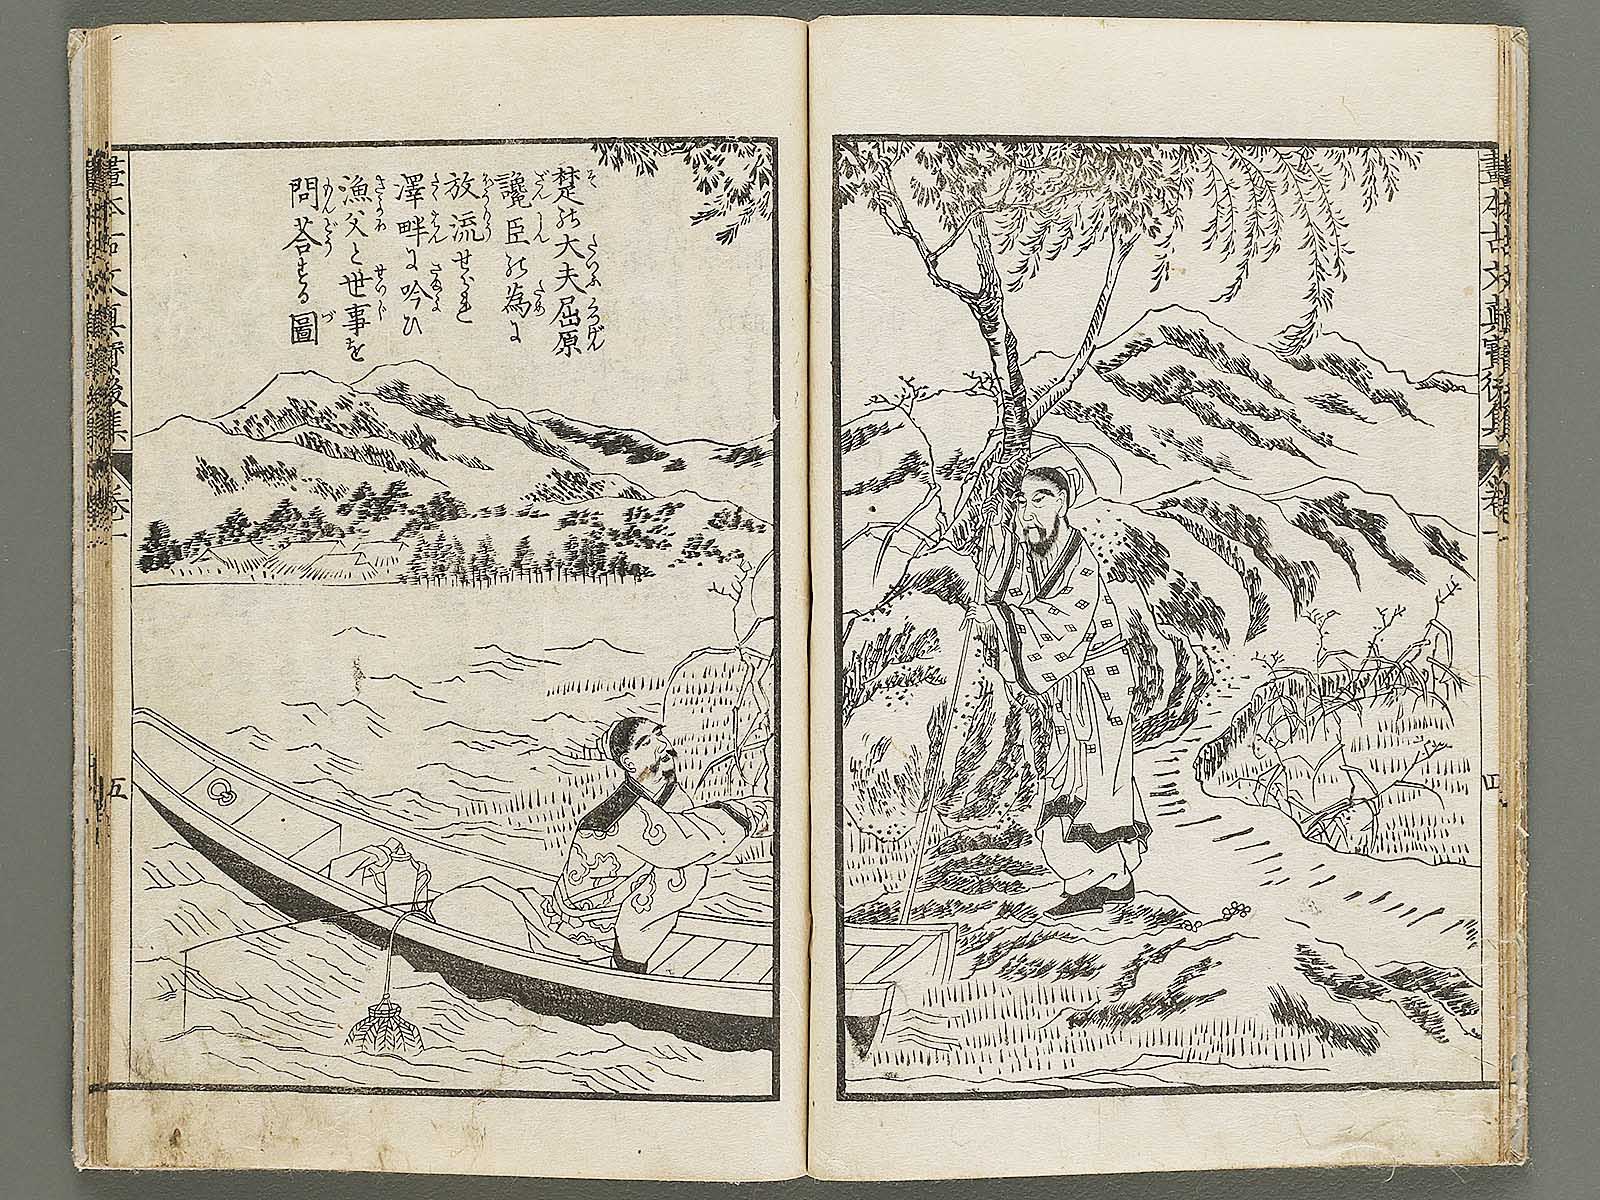 畫本古文眞寶後集
卷一
四
楚の大夫屈原
讒臣の為に
放流せられ
澤畔に吟ひ
漁父と世事を
問答する圖
畫本古文眞寶後集
卷一
五